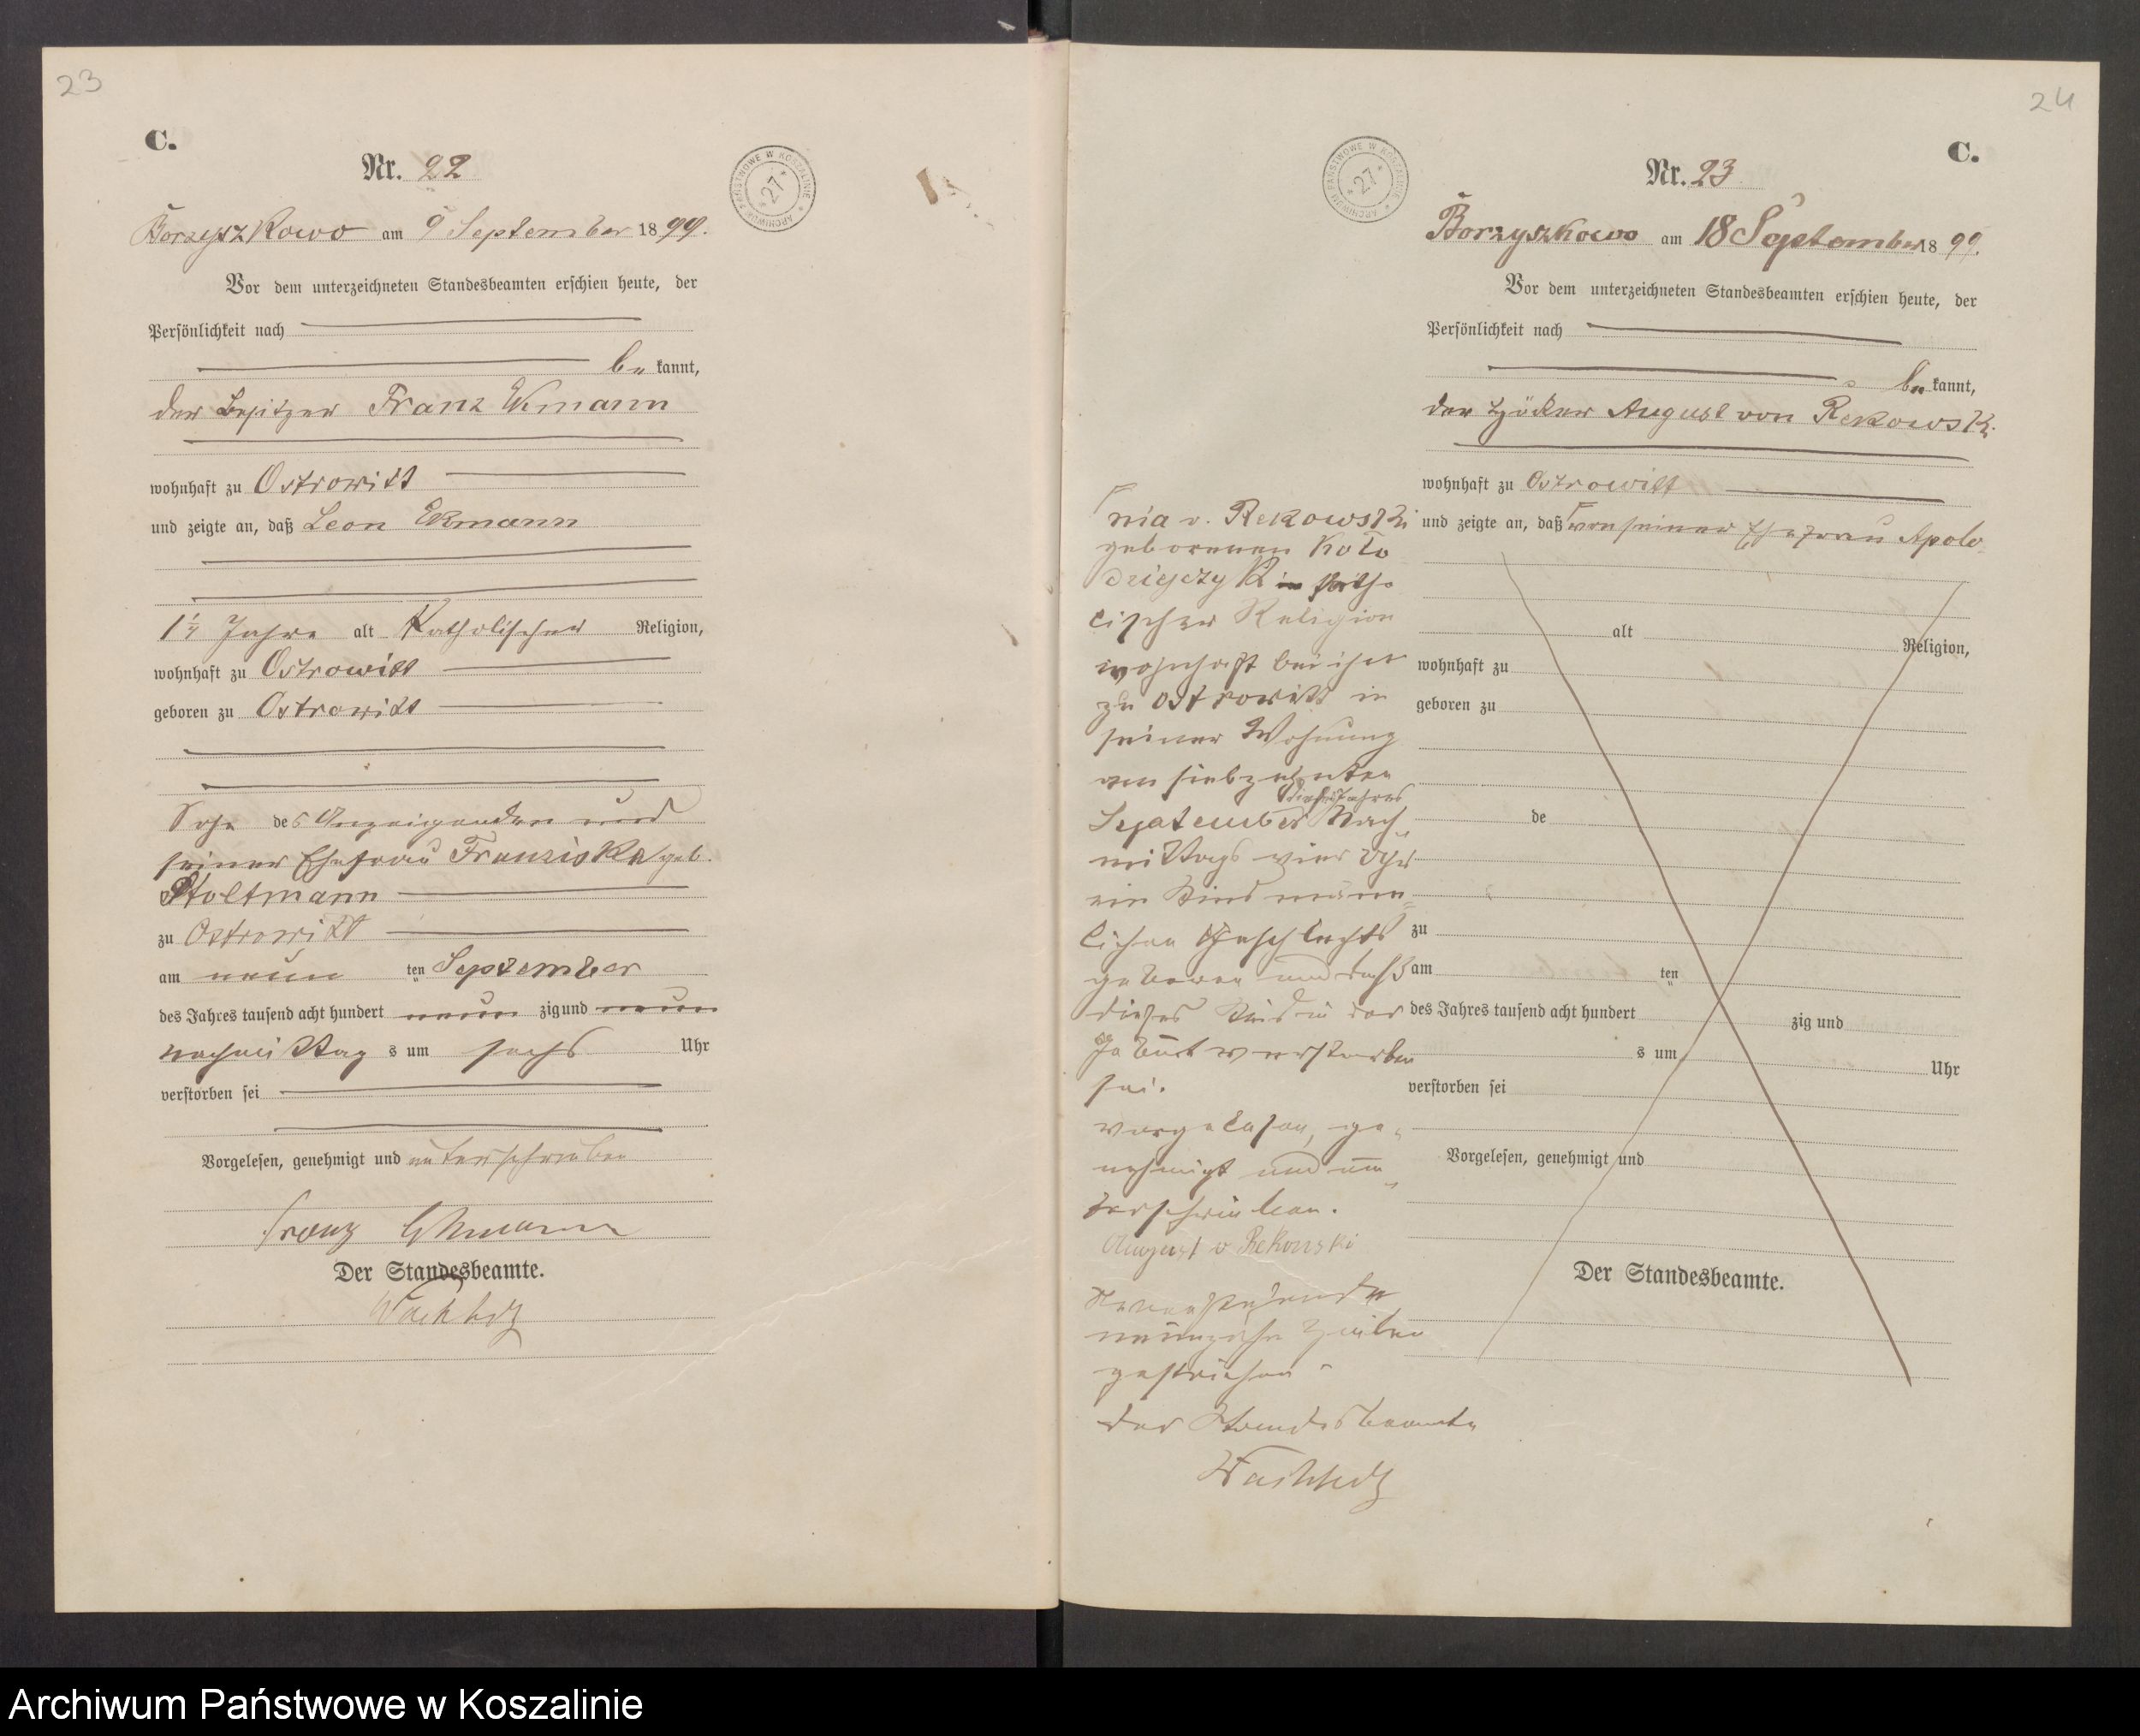 23
C.
Nr. 22
ARCHIWUM PAŃSTWOWE W KOSZALINIE * 27 *
Borzyszkowo am 9 September 1899.
Vor dem unterzeichneten Standesbeamten erschien heute, der
Persönlichkeit nach
bekannt,
der Besitzer Franz Ekmann
wohnhaft zu Ostrowitt
und zeigte an, daß Leon Ekmann
1 1/4 Jahre alt Katholischer Religion,
wohnhaft zu Ostrowitt
geboren zu Ostrowitt
Sohn des Anzeigenden und
seiner Ehefrau Franziska geb.
Stoltmann
zu Ostrowitt
am neun ten September
des Jahres tausend acht hundert neun zig und neun
nachmittag s um sechs Uhr
verstorben sei
Vorgelesen, genehmigt und unterschrieben
Franz Ekmann
Der Standesbeamte.
24
C.
Nr. 23
ARCHIWUM PAŃSTWOWE W KOSZALINIE * 27 *
Borzyszkowo am 18 September 1899.
Vor dem unterzeichneten Standesbeamten erschien heute, der
Persönlichkeit nach
bekannt,
der August von Rekowski
wohnhaft zu Ostrowitt
und zeigte an, daß von seiner Ehefrau Apolo
alt Religion,
wohnhaft zu
geboren zu
de
zu
am ten
des Jahres tausend acht hundert zig und
s um Uhr
verstorben sei
Vorgelesen, genehmigt und
Der Standesbeamte.
nia v. Rekowski
geborenen Koło
dziejczyk katho
lischer Religion
wohnhaft bei ihm
zu Ostrowitt in
seiner Wohnung
am siebzehnten
dieses Jahres
September Nach
mittags vier Uhr
ein Kind männ
lichen Geschlechts
geboren und daß
dieses Kind in der
Geburt verstorben
sei.
vorgelesen, ge
nehmigt und un
terschrieben.
August v Rekowski
Vorstehende
neunzehn Zeilen
gestrichen
der Standesbeamte
Archiwum Państwowe w Koszalinie